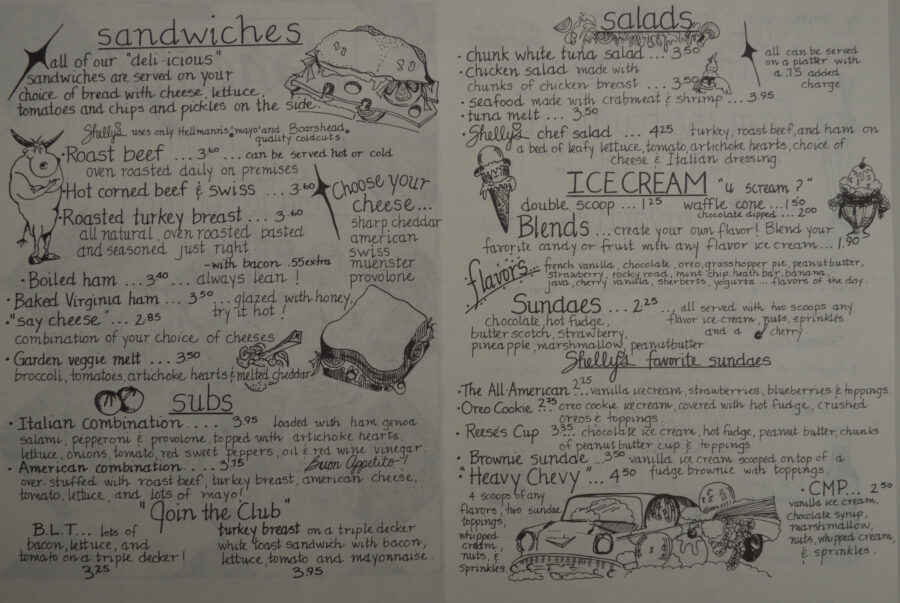 sandwiches
all of our "deli-icious"
sandwiches are served on your
choice of bread with cheese, lettuce,
tomatoes and chips and pickles on the side.
Shelly's uses only Hellmann's "mayo" and Boarshead quality coldcuts
Roast beef ... 3.60 ... can be served hot or cold
oven roasted daily on premises
Hot corned beef & swiss ... 3.60
Roasted turkey breast ... 3.60
all natural, oven roasted basted
and seasoned just right
-with bacon .55 extra
Choose your
cheese...
sharp cheddar
american
swiss
muenster
provolone
Boiled ham ... 3.40 ... always lean!
Baked Virginia ham ... 3.50 ... glazed with honey,
try it hot!
"say cheese" ... 2.85
combination of your choice of cheeses
Garden veggie melt ... 3.50
broccoli, tomatoes, artichoke hearts & melted cheddar
subs
Italian combination .... 3.95 loaded with ham, genoa
salami, pepperoni & provolone, topped with artichoke hearts,
lettuce, onions, tomato, red sweet peppers, oil & red wine vinegar.
American combination ... 3.75 Buon Appetito
over stuffed with roast beef, turkey breast, american cheese,
tomato, lettuce, and lots of mayo!
"Join the Club"
B.L.T... lots of
bacon, lettuce, and
tomato on a triple decker!
3.25
turkey breast on a triple decker
white toast sandwich with bacon,
lettuce, tomato and mayonnaise.
3.95
salads
chunk white tuna salad ... 3.50
chicken salad made with
chunks of chicken breast ... 3.50
seafood made with crabmeat & shrimp ... 3.95
tuna melt ... 3.50
all can be served
on a platter with
a .75 added
charge
Shelly's chef salad ... 4.25 turkey, roast beef, and ham on
a bed of leafy lettuce, tomato, artichoke hearts, choice of
cheese & Italian dressing.
ICE CREAM "u scream?"
double scoop ... 1.25 waffle cone ... 1.50
chocolate dipped ... 2.00
Blends ... create your own flavor! Blend your
favorite candy or fruit with any flavor ice cream... 1.90
flavors... french vanilla, chocolate, oreo, grasshopper pie, peanut butter,
strawberry, rocky road, mint chip, heath bar, banana,
java, cherry vanilla, sherberts, yogurts ... flavors of the day.
Sundaes ... 2.25 ... all served with two scoops any
flavor ice cream, nuts, sprinkles
and a cherry
chocolate, hot fudge,
butter scotch, strawberry,
pineapple, marshmallow, peanutbutter
Shelly's favorite sundaes
The All-American 2.25... vanilla ice cream, strawberries, blueberries & toppings.
Oreo Cookie 2.75... oreo cookie ice cream, covered with hot fudge, crushed
oreos & toppings.
Reese's Cup 3.35... chocolate ice cream, hot fudge, peanut butter, chunks
of peanut butter cup & toppings.
Brownie sundae ... 3.50 vanilla ice cream scooped on top of a
fudge brownie with toppings.
"Heavy Chevy" ... 4.50
4 scoops of any
flavors, two sundae
toppings,
whipped
cream,
nuts, &
sprinkles
CMP... 2.50
vanilla ice cream,
chocolate syrup,
marshmallow,
nuts, whipped cream,
& sprinkles.